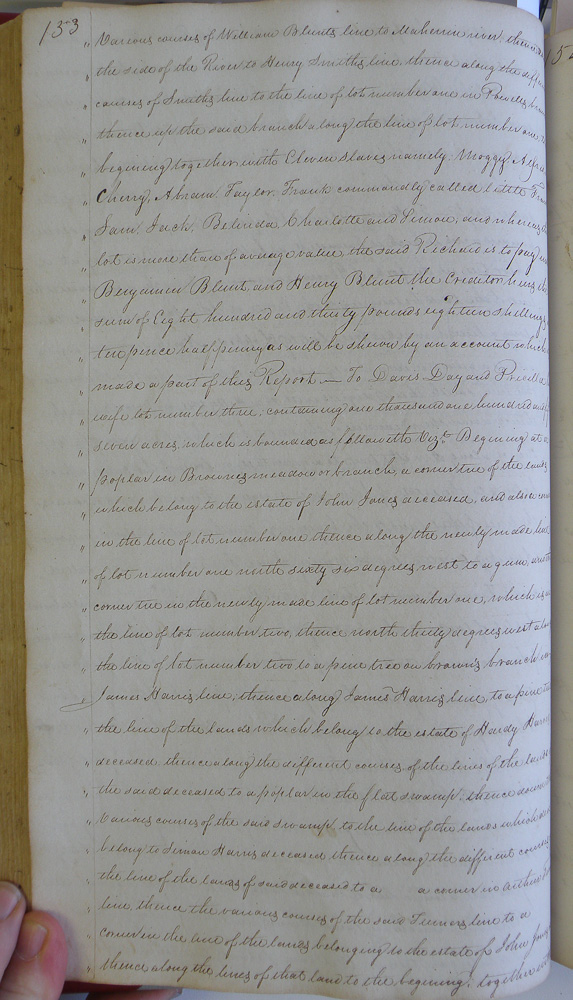 133
Various courses of William Blunts line to Maherrin river, thence
the side of the River to Henry Smiths line, thence along the
courses of Smiths line to the line of lot number one in
thence up the said branch along the line of lot number one
begining together with Eleven slaves namely. Moggy,
Cherry, Abram. Taylor. Frank commandly called little
Sam. Jack. Belinda. Charlotte and Simon, and whereas
lot is more than of average value the said Richard is to pay
Benjamin Blunt and Henry Blunt the Creditor
sum of Eight hundred and thirty pounds eighteen shillings
ten pence half penny as will be shewn by an account which
made a part of this Report. — To Davis Day and
wife lot number three, containing one thousand one hundred
seven acres which is bounded as followith Vizt. Begining at a
poplar in Browns meadow or branch, a corner tree of the lands
which belong to the estate of John Jones deceased, and also a
in the line of lot number one thence along the newly made line
of lot number one north sixty six degrees west to a gum,
corner tree in the newly made line of lot number one, which is
the line of lot number two, thence north thirty degrees west
the line of lot number two to a pine tree on browns branch in
James Harris line, thence along James Harris line, to a pine
the line of the lands which belong to the estate of Hardy
deceased thence along the different courses of the lines of the lands
the said deceased to a poplar in the flat swamp. thence down the
Various courses of the said swamp to the line of the lands which
belong to Simon Harris deceased thence along the different courses
the line of the lands of said deceased to a a corner in
line, thence the various courses of the said line to a
corner in the line of the lands belonging to the estate of John
thence along the lines of that land to the begining. together